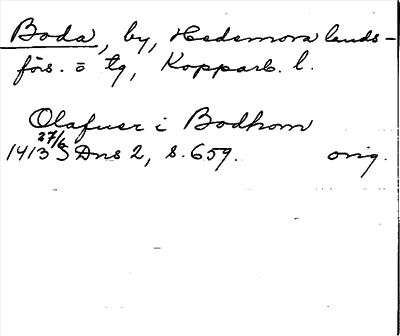 Boda, by, Hedemora lands-
förs. o tg, Kopparb. l.
Olafuer i Bodhom
27/6
1413 SDns 2, s. 659. orig.